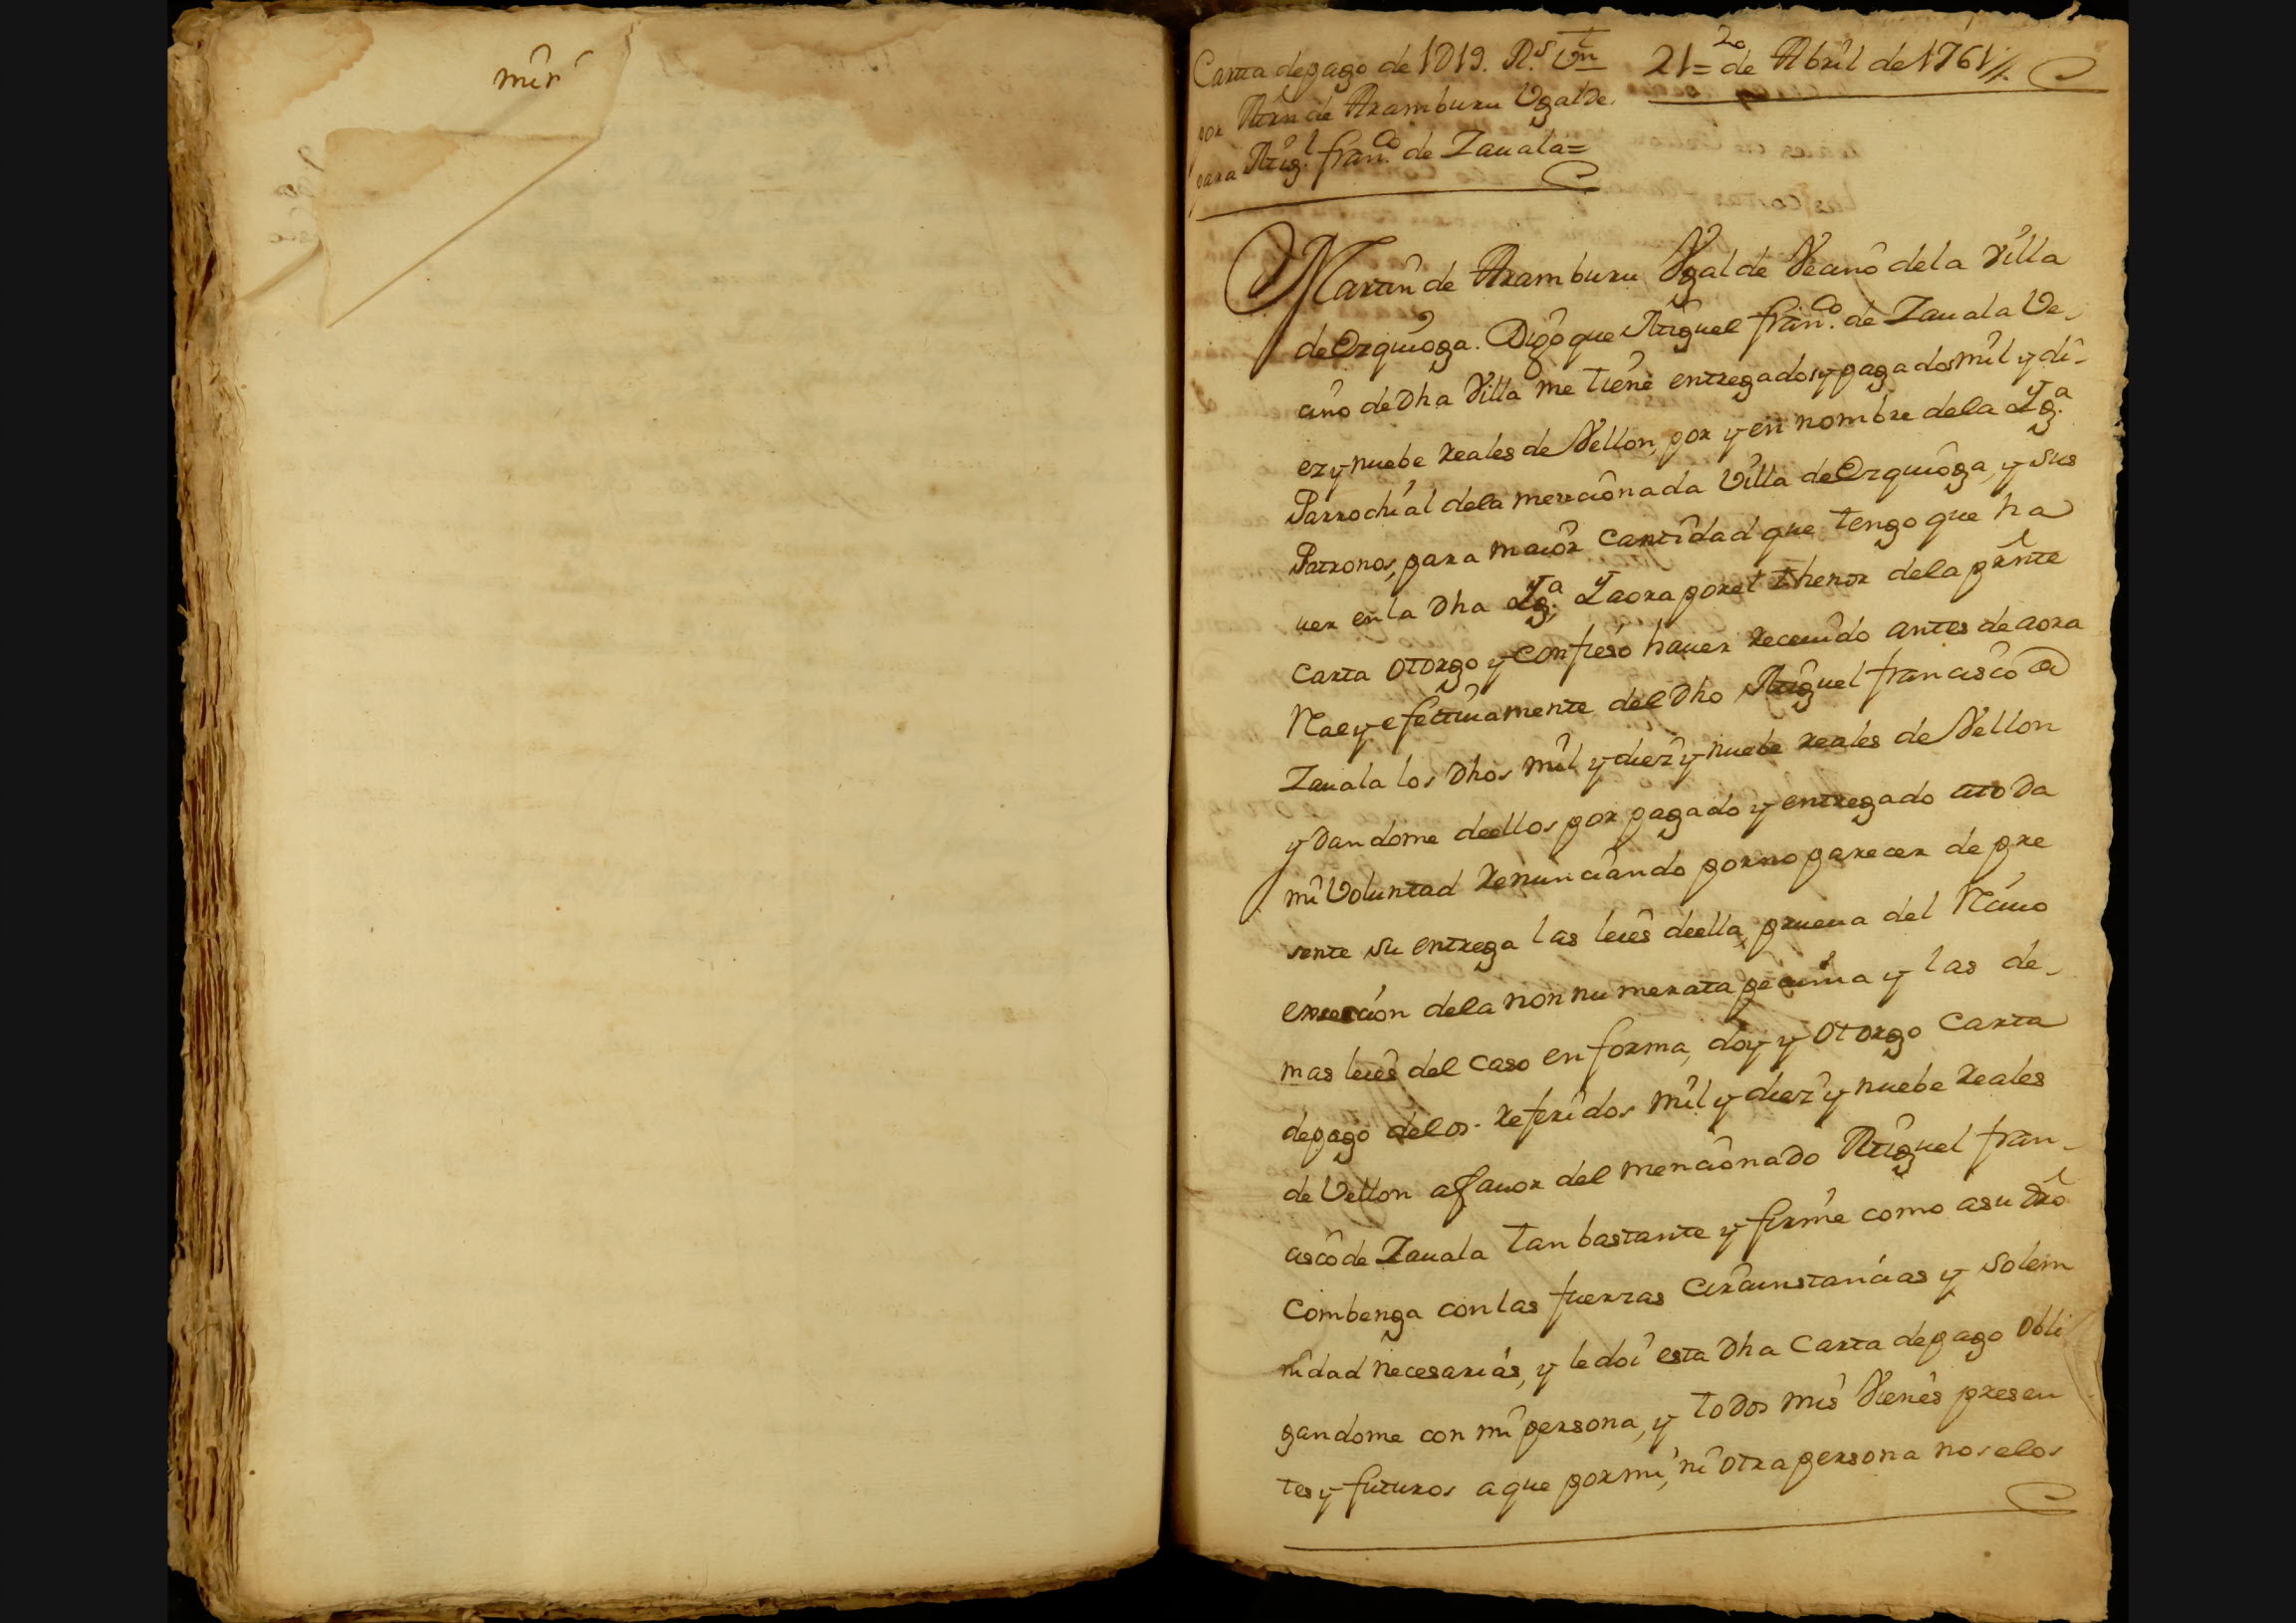 min
Carta de pago de 1019. R.s Vn
por Mrn de Aramburu Ugalde.
para Mig.l fran.co de Zauala=
20
21= de Abril de 1761//.
Martin de Aramburu Vgalde Vecino dela Villa
de Ezquioga. Digo que Miguel fran.co de Zauala Ve-
cino de Dha Villa me tiene entregados y pagados mil y di-
ez y nuebe reales de Vellon, por y en nombre dela Yg.a
Parrochial dela mencionada Villa de Ezquioga, y sus
Patronos, para maior cantidad que tengo que ha
uer en la Dha Yg.a, Y aora por el thenor dela prnte
Carta otorgo y confieso hauer receuido antes de aora
Rl y efectiuamente del Dho Miguel francisco de
Zauala los Dhos mil y diez y nuebe reales de Vellon
y Dandome de ellos por pagado y entregado a toda
mi Voluntad renunciando por no parecer de pre
sente su entrega las leies de ella, prueua del Reciuo
excepcion dela non numerata pecunia y las de-
mas leies del caso en forma, doy y otorgo Carta
de pago de los referidos mil y diez y nuebe reales
de Vellon a fauor del mencionado Miguel fran-
cisco de Zauala tan bastante y firme como a su dro
combenga con las fuerzas circunstancias y solem
nidad necesarias, y le doi esta Dha Carta de pago obli
gandome con mi persona, y todos mis Vienes presen
tes y futuros a que por mi, ni otra persona no se los